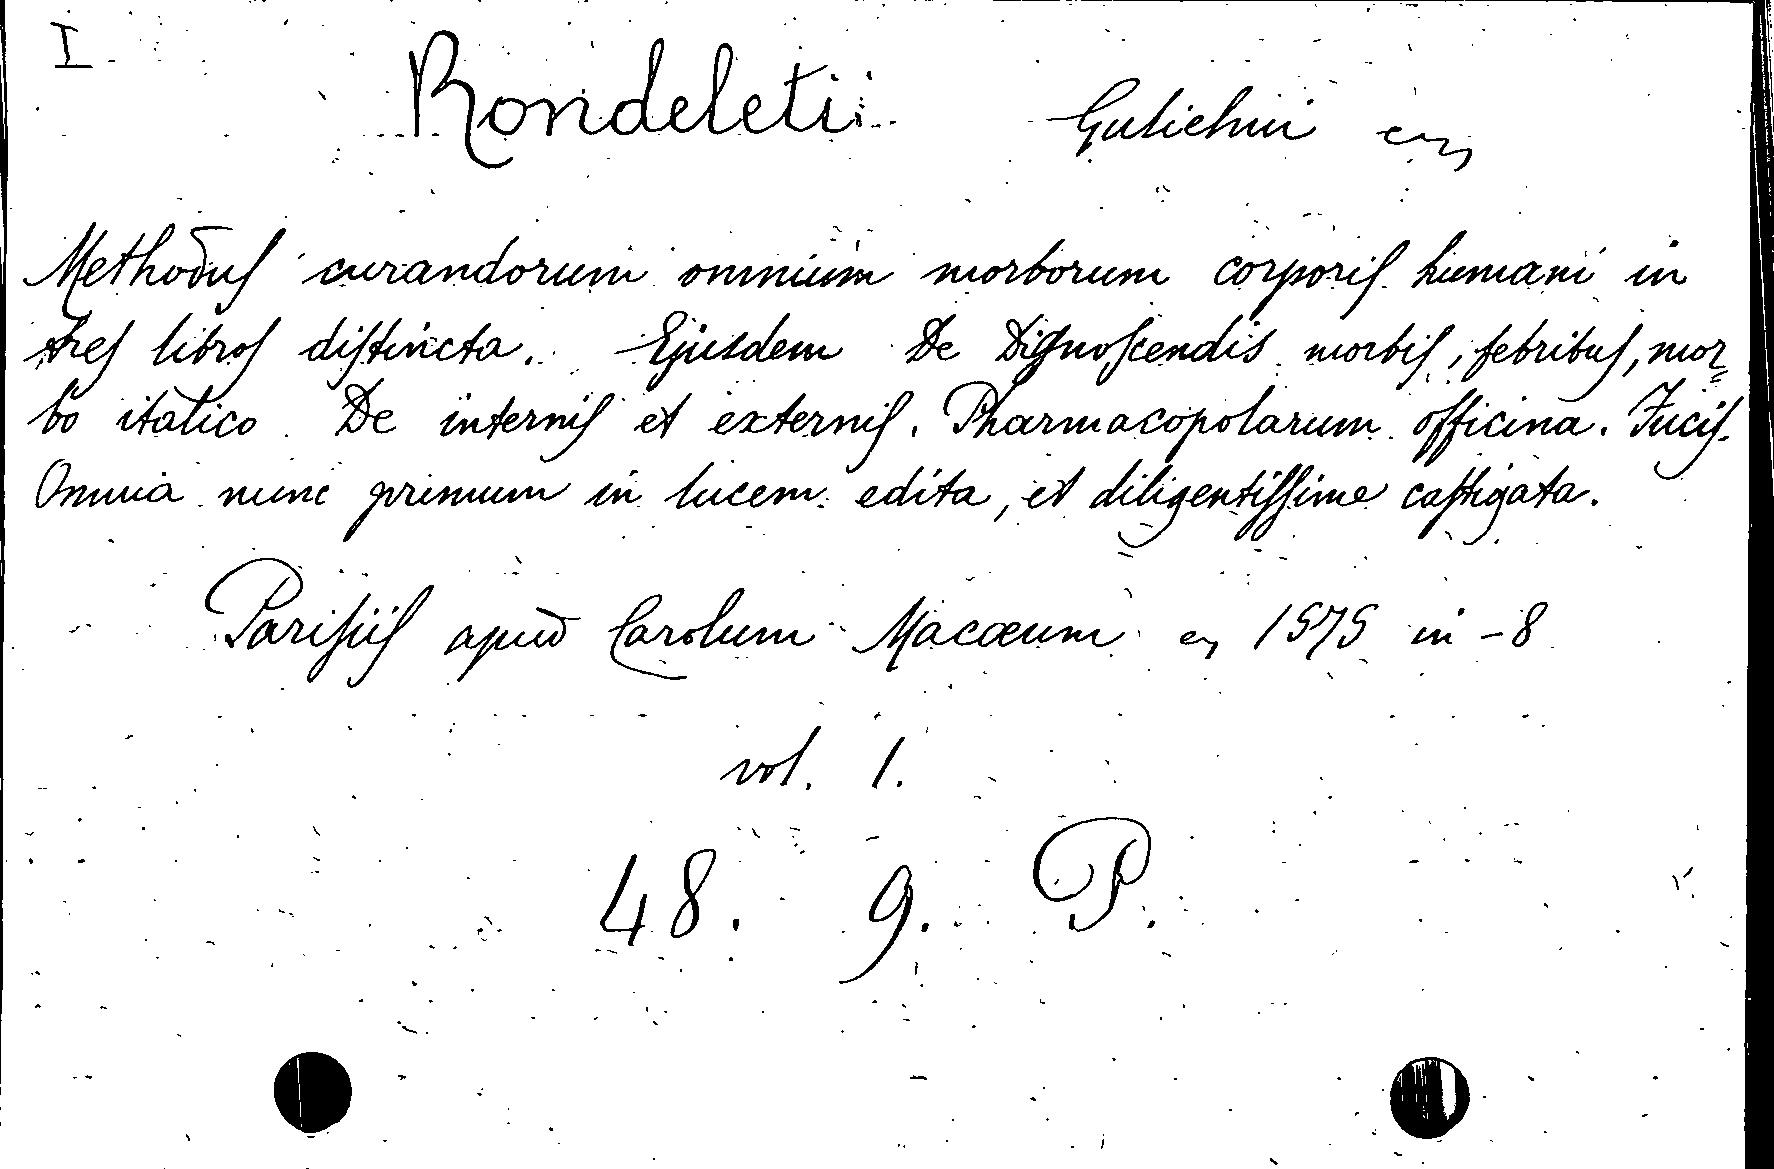 I
Rondeletii Gulielmi
Methodus curandorum omnium morborum corporis humani in
tres libros distincta. Ejusdem De Dignoscendis morbis, febribus, mor=
bo italico De internis et externis. Pharmacopolarum officina. Fucis.
Omnia nunc primum in lucem edita, et diligentissime castigata.
Parisiis apud Carolum Macæum 1575 in -8
vol. 1.
48. 9. P.